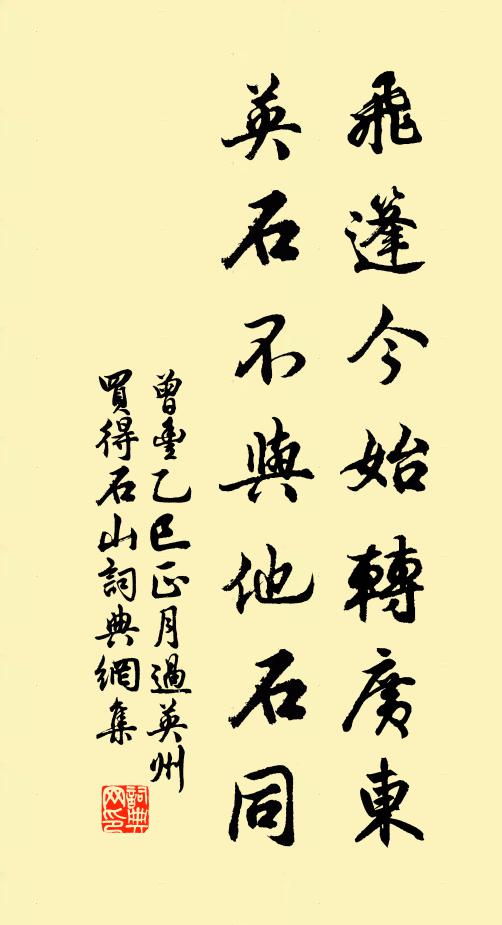 飛蓬今始轉廣東
英石不與他石同
曾豐乙巳正月過英州
買得石山詞典網集
詞典网印